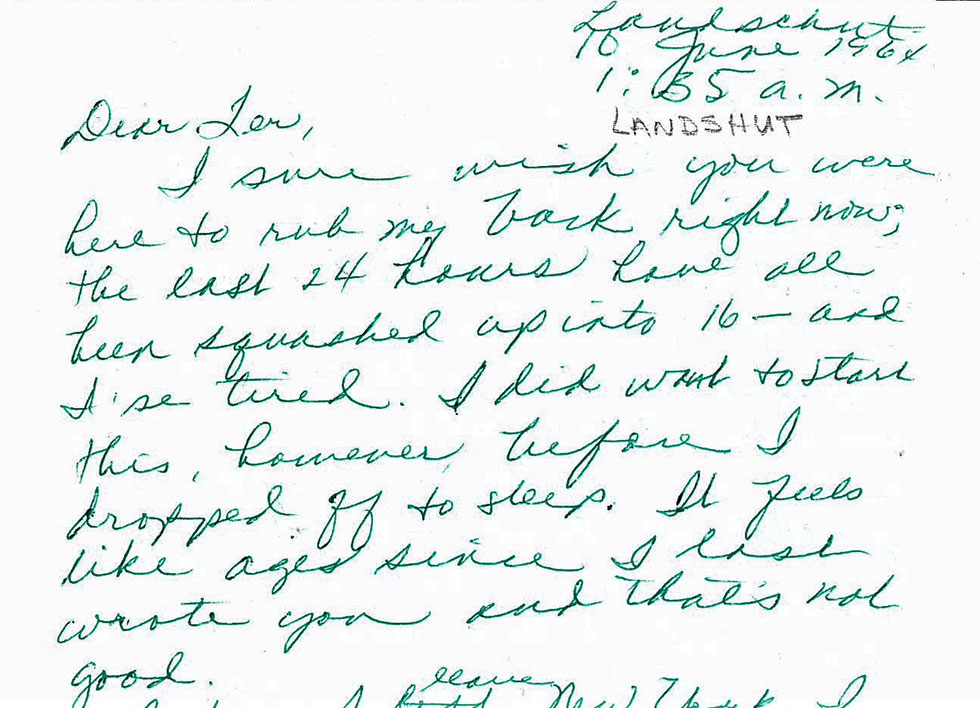 Landschut
10 June 1964
1:35 a.m.
LANDSHUT
Dear Ler,
I sure wish you were
here to rub my back right now;
the last 24 hours have all
been squashed up into 16 — and
I'se tired. I did want to start
this, however, before I
dropped off to sleep. It feels
like ages since I last
wrote you and that's not
good.
leave
New York I